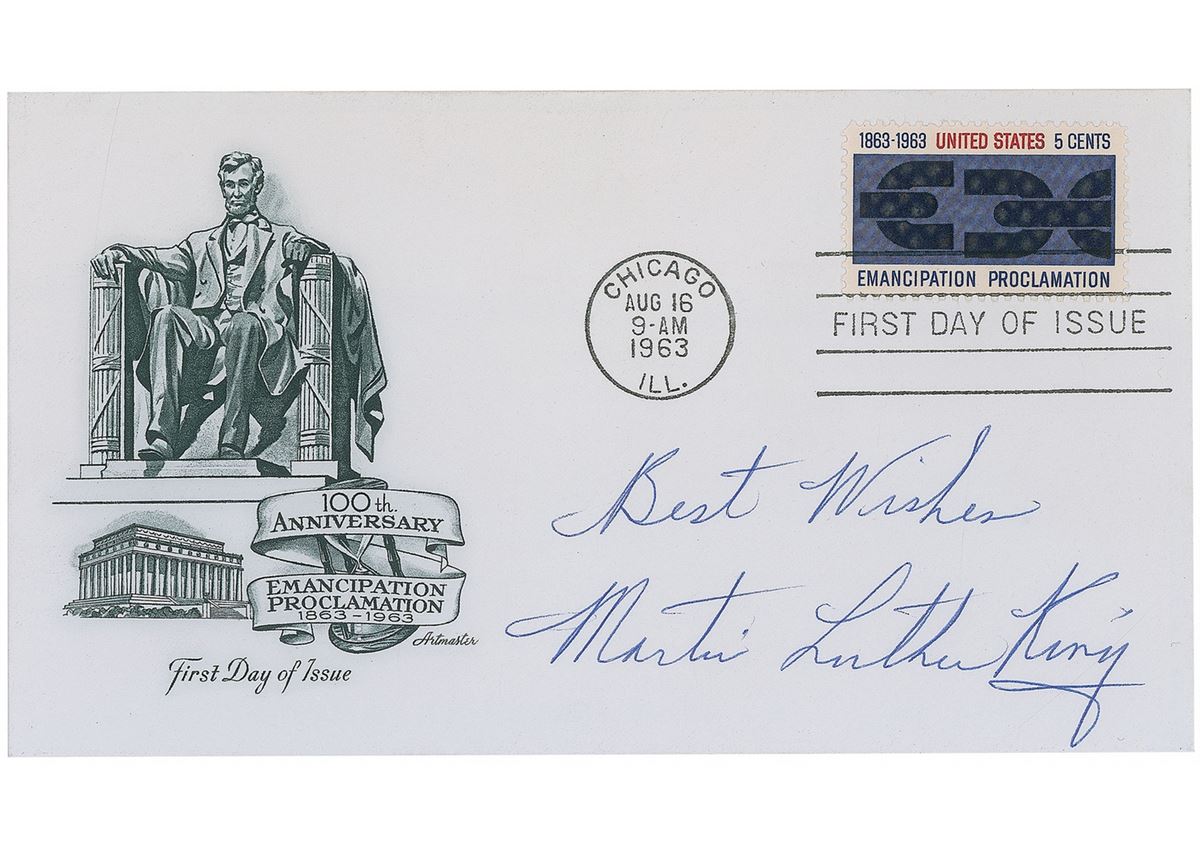 1863-1963 UNITED STATES 5 CENTS
EMANCIPATION PROCLAMATION
CHICAGO
AUG 16
9-AM
1963
ILL.
FIRST DAY OF ISSUE
100th.
ANNIVERSARY
EMANCIPATION
PROCLAMATION
1863-1963
Artmaster
First Day of Issue
Best Wishes
Martin Luther King